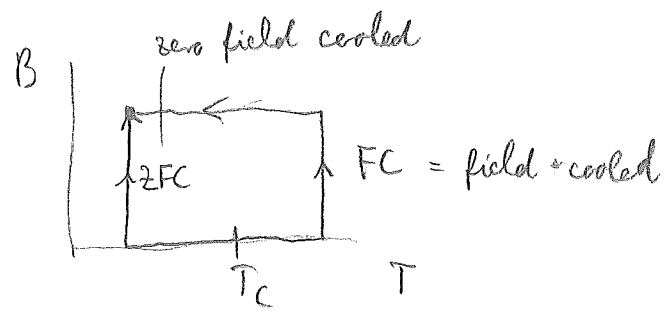 zero field cooled
B
ZFC
FC = field-cooled
T_C
T